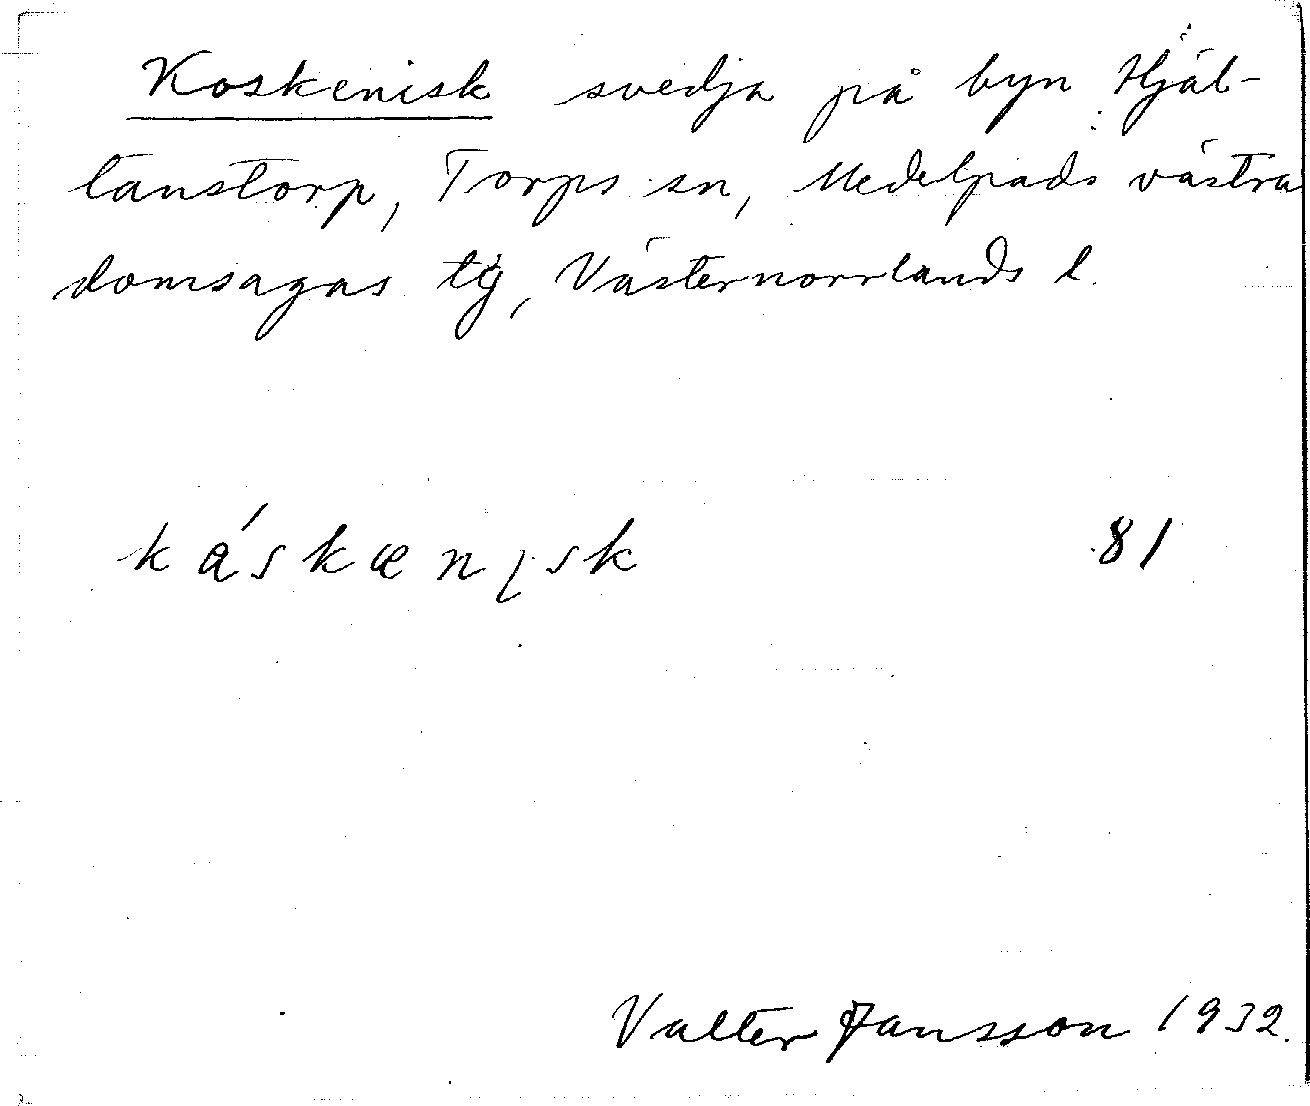 Koskenisk svedja på byn Hjäl-
tanstorp, Torps sn, Medelpads västra
domsagas tg, Västernorrlands l.
káskænısk 81
Valter Jansson 1932.